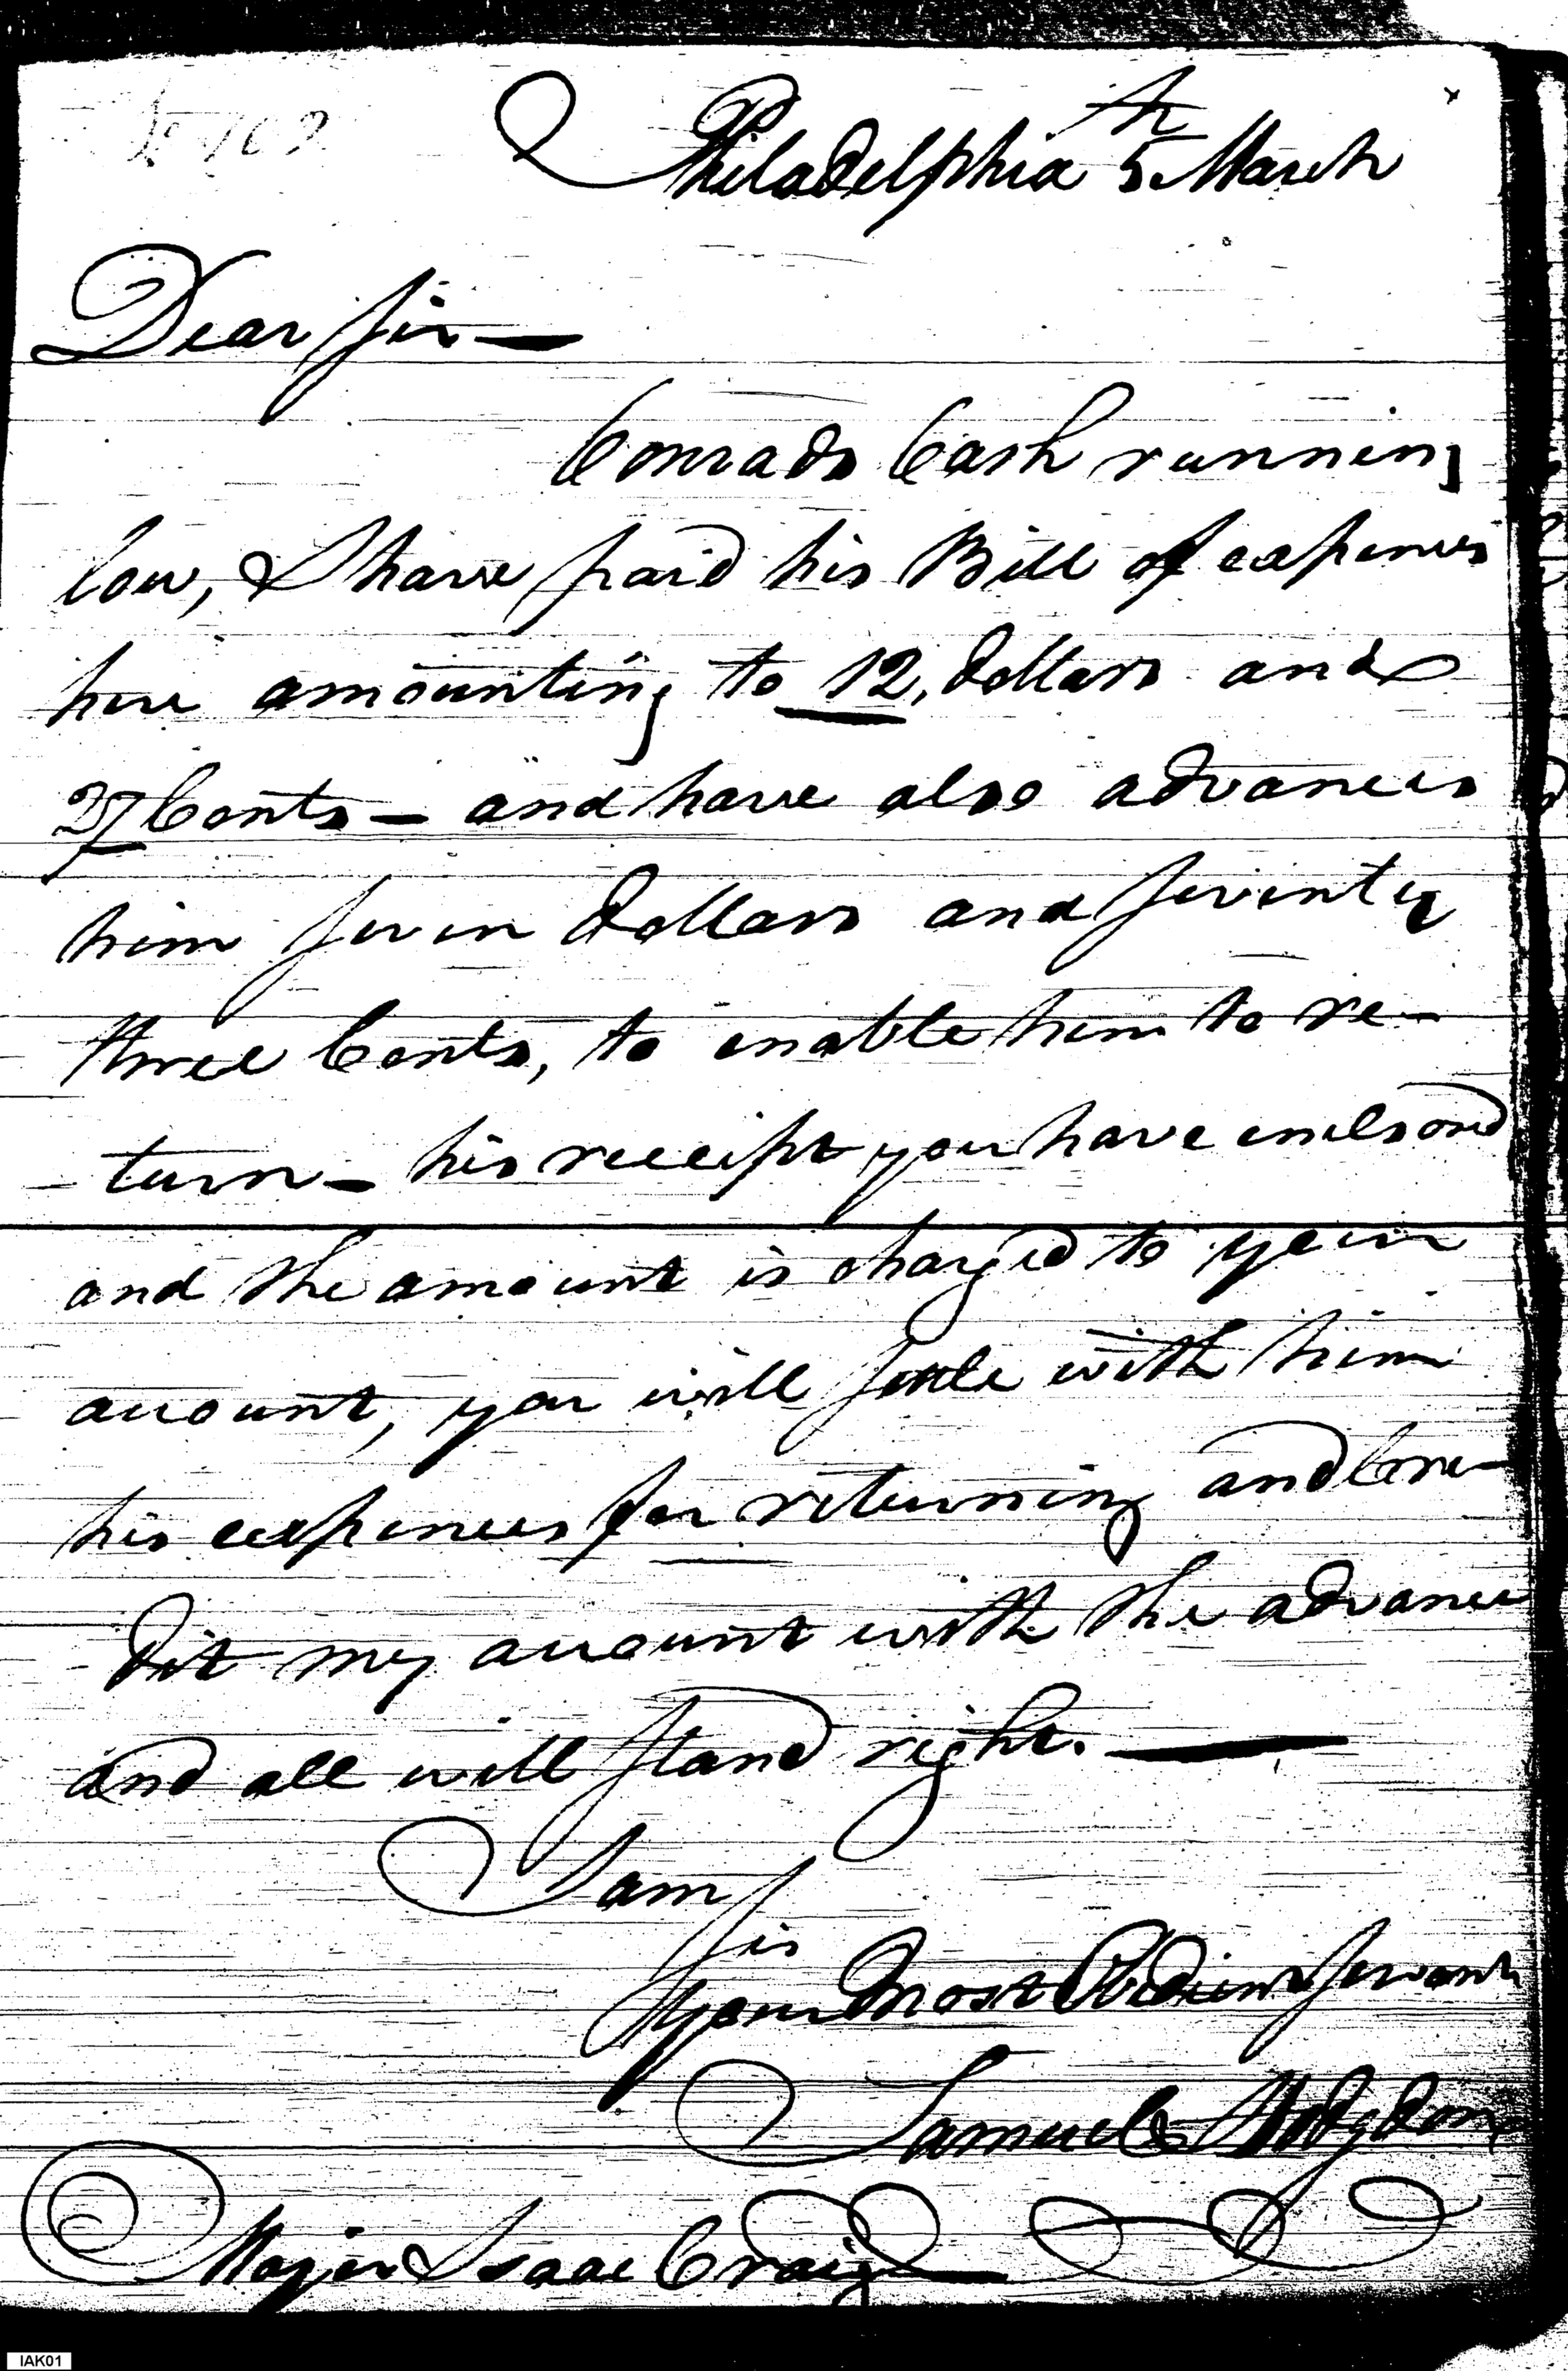 Philadelphia 5th March
Dear Sir —
Conrads Cash running
low, I have paid his Bill of expences
here amounting to 12, dollars and
27 Cents — and have also advanced
him seven dollars and seventy
three Cents, to enable him to re-
- turn — his receipt you have enclosed
and the amount is charged to your
account, you will settle with him
his expences for returning and Cre-
- dit my account with the advance
and all will stand right. —
I am
Sir
Your Most Obedient Servant
Samuel Hodgdon
Major Isaac Craig
IAK01